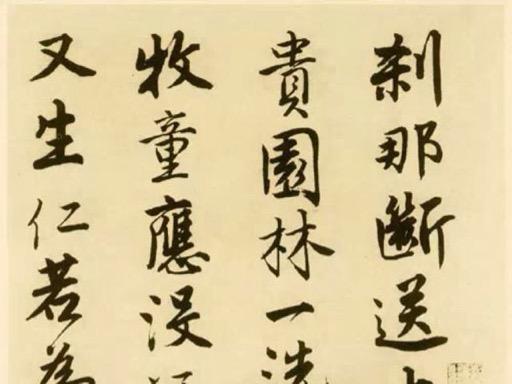 刹那斷送
貴園林一洗
牧童應沒
又生仁若為